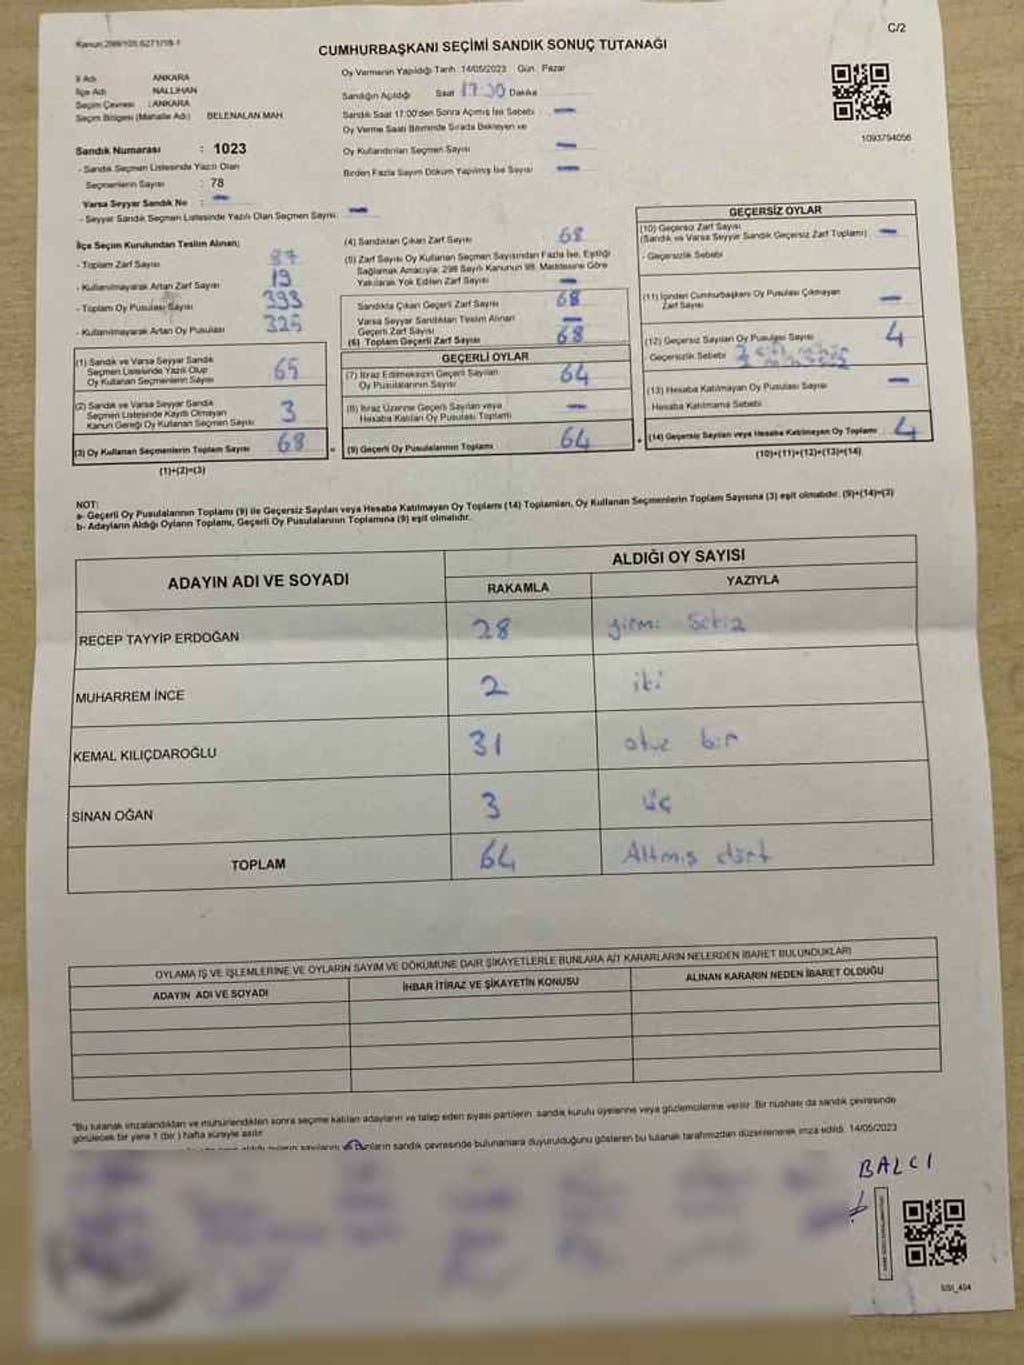 Kanun:298/105.6271/19-1
C/2
CUMHURBAŞKANI SEÇİMİ SANDIK SONUÇ TUTANAĞI
İl Adı ANKARA
İlçe Adı NALLIHAN
Seçim Çevresi : ANKARA
Seçim Bölgesi (Mahalle Adı) BELENALAN MAH
Oy Vermenin Yapıldığı Tarih :14/05/2023 Gün : Pazar
Sandığın Açıldığı Saat 17:30 Dakika
Sandık Saat 17:00'den Sonra Açılmış İse Sebebi —
Oy Verme Saati Bitiminde Sırada Bekleyen ve
Oy Kullandırılan Seçmen Sayısı —
Birden Fazla Sayım Döküm Yapılmış İse Sayısı —
1093794056
Sandık Numarası : 1023
- Sandık Seçmen Listesinde Yazılı Olan
Seçmenlerin Sayısı : 78
Varsa Seyyar Sandık No : —
- Seyyar Sandık Seçmen Listesinde Yazılı Olan Seçmen Sayısı: —
İlçe Seçim Kurulundan Teslim Alınan;
- Toplam Zarf Sayısı 87
- Kullanılmayarak Artan Zarf Sayısı 19
- Toplam Oy Pusulası Sayısı 393
- Kullanılmayarak Artan Oy Pusulası 325
(1) Sandık ve Varsa Seyyar Sandık
Seçmen Listesinde Yazılı Olup
Oy Kullanan Seçmenlerin Sayısı 65
(2) Sandık ve Varsa Seyyar Sandık
Seçmen Listesinde Kayıtlı Olmayan
Kanun Gereği Oy Kullanan Seçmen Sayısı 3
(3) Oy Kullanan Seçmenlerin Toplam Sayısı 68
(1)+(2)=(3)
(4) Sandıktan Çıkan Zarf Sayısı 68
(5) Zarf Sayısı Oy Kullanan Seçmen Sayısından Fazla İse, Eşitliği
Sağlamak Amacıyla; 298 Sayılı Kanunun 98. Maddesine Göre
Yakılarak Yok Edilen Zarf Sayısı —
Sandıkta Çıkan Geçerli Zarf Sayısı 68
Varsa Seyyar Sandıktan Teslim Alınan
Geçerli Zarf Sayısı —
(6) Toplam Geçerli Zarf Sayısı 68
GEÇERLİ OYLAR
(7) İtiraz Edilmeksizin Geçerli Sayılan
Oy Pusulalarının Sayısı 64
(8) İtiraz Üzerine Geçerli Sayılan veya
Hesaba Katılan Oy Pusulası Toplamı —
= (9) Geçerli Oy Pusulalarının Toplamı 64
GEÇERSİZ OYLAR
(10) Geçersiz Zarf Sayısı
(Sandık ve Varsa Seyyar Sandık Geçersiz Zarf Toplamı) —
- Geçersizlik Sebebi
(11) İçinden Cumhurbaşkanı Oy Pusulası Çıkmayan
Zarf Sayısı —
(12) Geçersiz Sayılan Oy Pusulası Sayısı 4
- Geçersizlik Sebebi
(13) Hesaba Katılmayan Oy Pusulası Sayısı —
Hesaba Katılmama Sebebi
+ (14) Geçersiz Sayılan veya Hesaba Katılmayan Oy Toplamı 4
(10)+(11)+(12)+(13)=(14)
NOT:
a- Geçerli Oy Pusulalarının Toplamı (9) ile Geçersiz Sayılan veya Hesaba Katılmayan Oy Toplamı (14) Toplamları, Oy Kullanan Seçmenlerin Toplam Sayısına (3) eşit olmalıdır. (9)+(14)=(3)
b- Adayların Aldığı Oyların Toplamı, Geçerli Oy Pusulalarının Toplamına (9) eşit olmalıdır.
ADAYIN ADI VE SOYADI
ALDIĞI OY SAYISI
RAKAMLA YAZIYLA
RECEP TAYYİP ERDOĞAN 28 yirmi sekiz
MUHARREM İNCE 2 iki
KEMAL KILIÇDAROĞLU 31 otuz bir
SİNAN OĞAN 3 üç
TOPLAM 64 Altmış dört
OYLAMA İŞ VE İŞLEMLERİNE VE OYLARIN SAYIM VE DÖKÜMÜNE DAİR ŞİKAYETLERLE BUNLARA AİT KARARLARIN NELERDEN İBARET BULUNDUKLARI
ADAYIN ADI VE SOYADI İHBAR İTİRAZ VE ŞİKAYETİN KONUSU ALINAN KARARIN NEDEN İBARET OLDUĞU
*Bu tutanak imzalandıktan ve mühürlendikten sonra seçime katılan adayların ve talep eden siyasi partilerin sandık kurulu üyelerine veya gözlemcilerine verilir. Bir nüshası da sandık çevresinde
görülecek bir yere 1 (bir) hafta süreyle asılır.
bunların sandık çevresinde bulunanlara duyurulduğunu gösteren bu tutanak tarafımızdan düzenlenerek imza edildi. 14/05/2023
BALCI
SSI_404